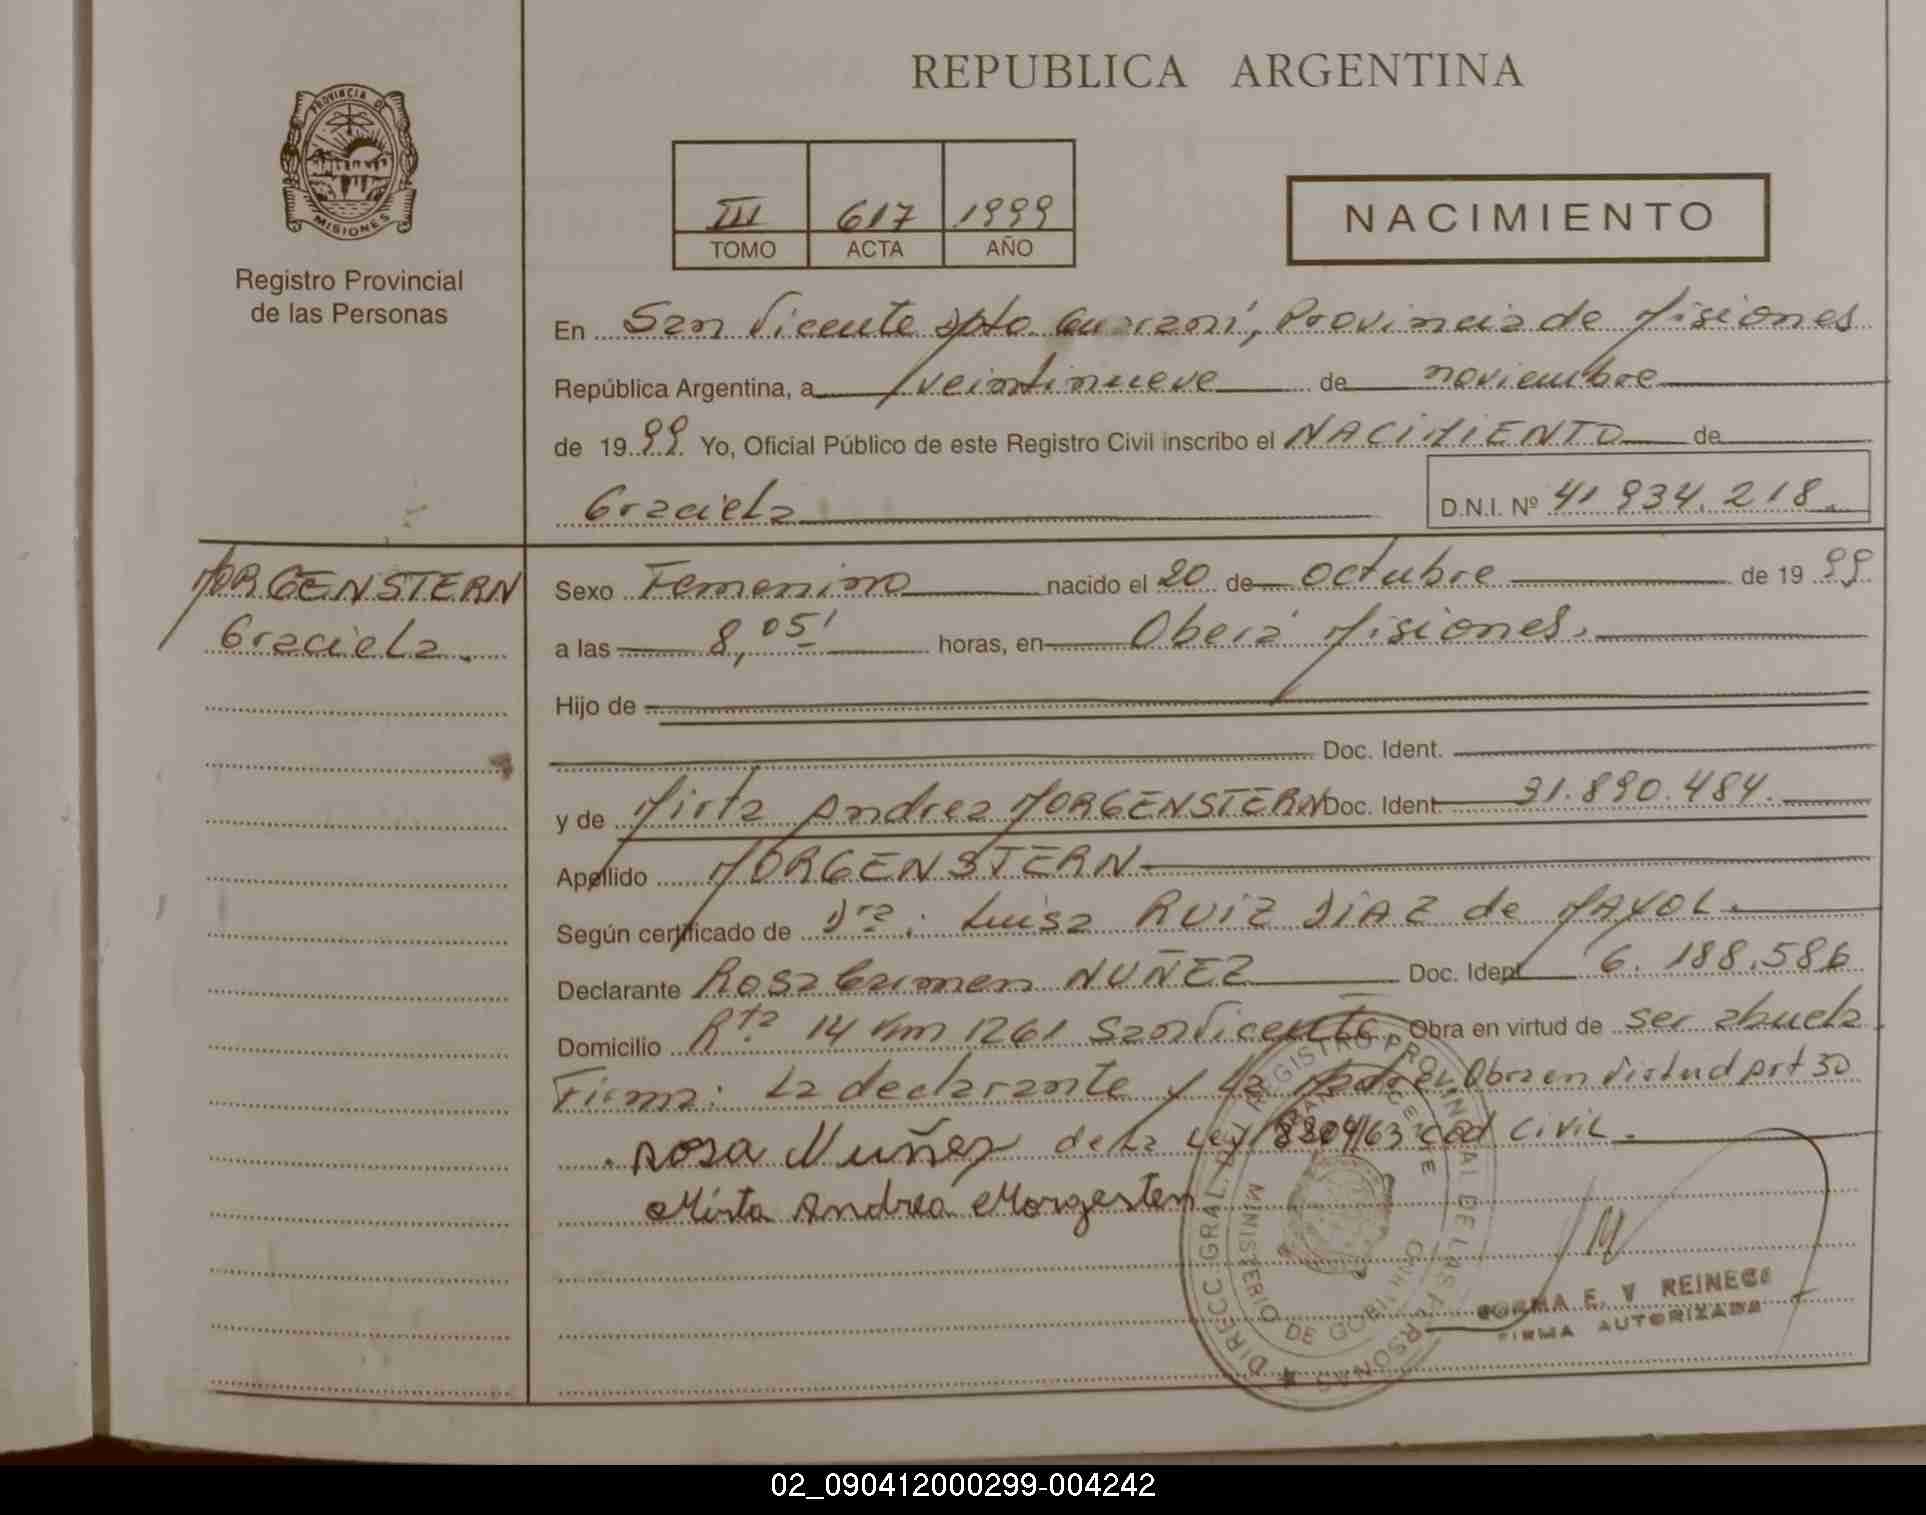 REPUBLICA ARGENTINA
PROVINCIA DE
MISIONES
Registro Provincial
de las Personas
III 617 1999
TOMO ACTA AÑO
NACIMIENTO
En San Vicente Dpto Guaraní, Provincia de Misiones
República Argentina, a veintinueve de noviembre
de 1999 Yo, Oficial Público de este Registro Civil inscribo el NACIMIENTO de
Graciela D.N.I. Nº 41.934.218.
MORGENSTERN
Graciela.
Sexo Femenino nacido el 20 de Octubre de 1999
a las 8,05' horas, en Oberá Misiones.
Hijo de
Doc. Ident.
y de Mirta Andrea MORGENSTERN Doc. Ident 31.890.484.
Apellido MORGENSTERN
Según certificado de Dra. Luisa RUIZ DIAZ de MAYOL.
Declarante Rosa Carmen NUÑEZ Doc. Ident 6.188.586
Domicilio Rta 14 Km 1261 San Vicente. Obra en virtud de ser abuela
Firma: La declarante y la madre. Obra en virtud Art 30
de la Ley 8204/63 Cod Civil.
Rosa Nuñez
Mirta Andrea Morgesten
DIRECC. GRAL. DEL REGISTRO PROVINCIAL DE LAS PERSONAS
MINISTERIO DE GOBIERNO
SAN VICENTE
NORMA E. V. REINECK
FIRMA AUTORIZADA
02_090412000299-004242